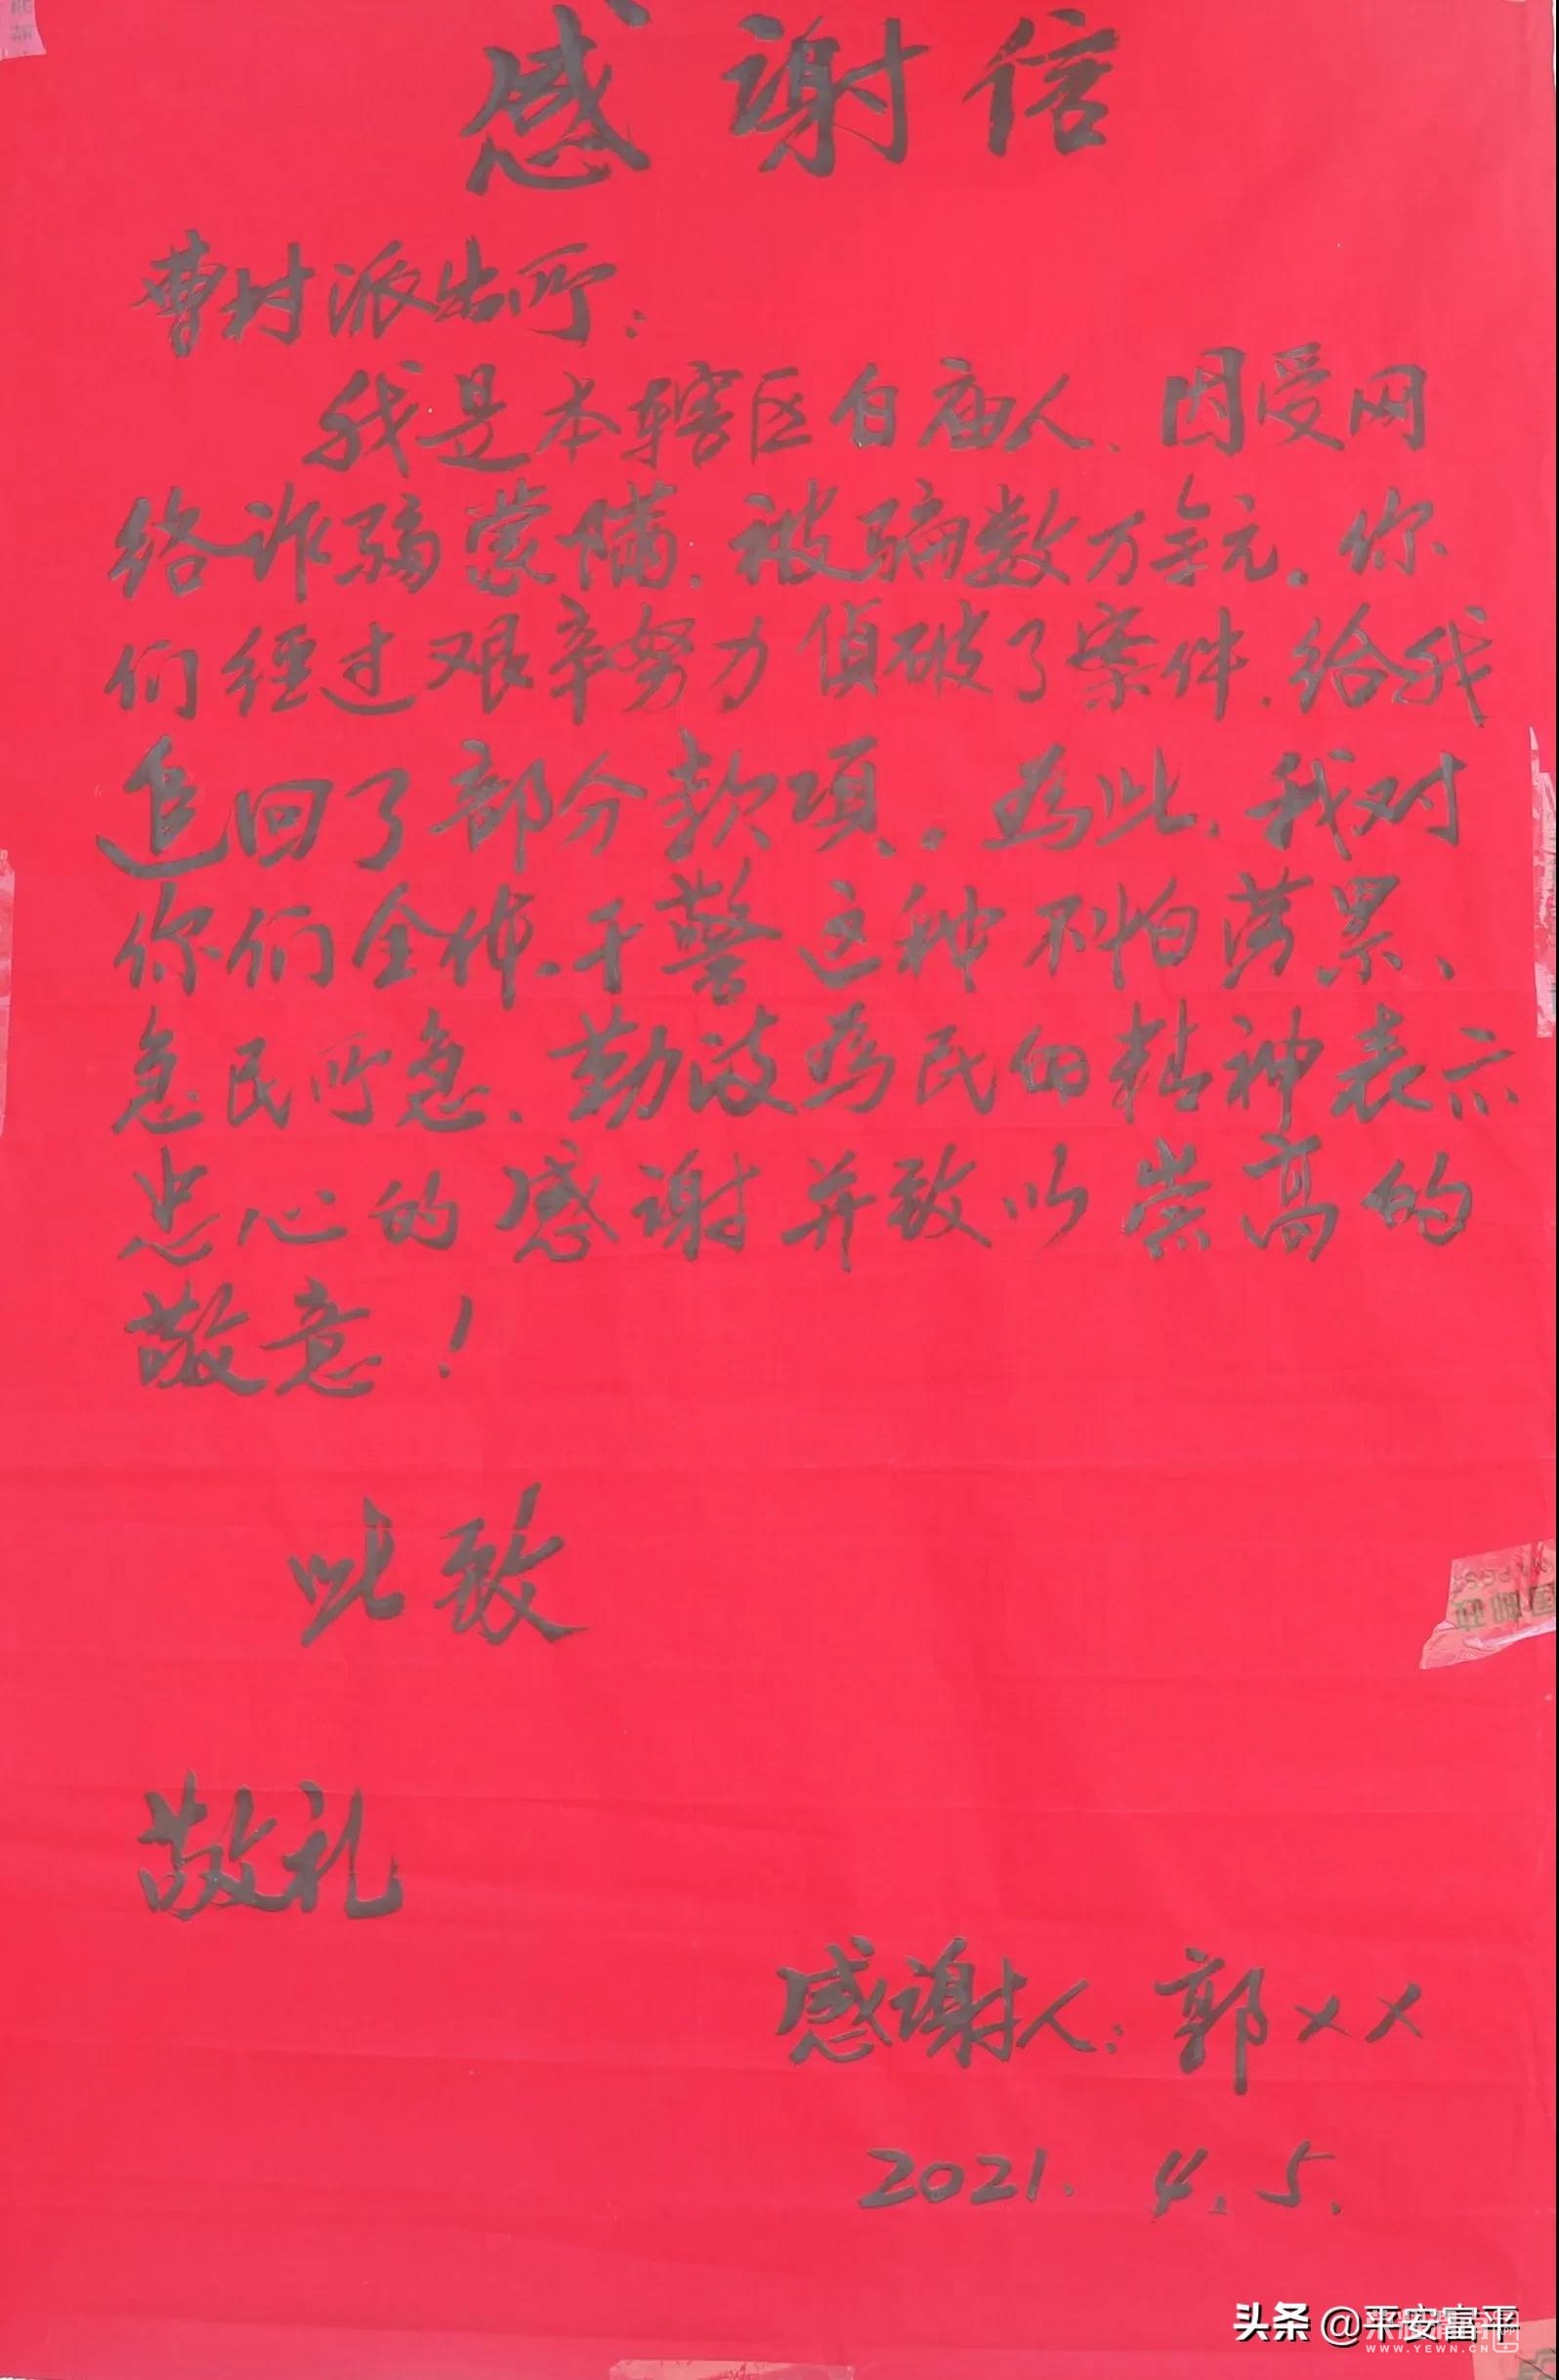 感谢信
曹村派出所：
我是本辖区白庙人、因受网
络诈骗蒙瞒、被骗数万余元。你
们经过艰辛努力偵破了案件、给我
追回了部分款项。為此、我对
你们全体干警这种不怕劳累、
急民所急、勤政為民的精神表示
忠心的感谢并致以崇高的
敬意！
此致
敬礼
感谢人：郭××
2021.4.5.
头条@平安富平
WWW.YEWN.CN